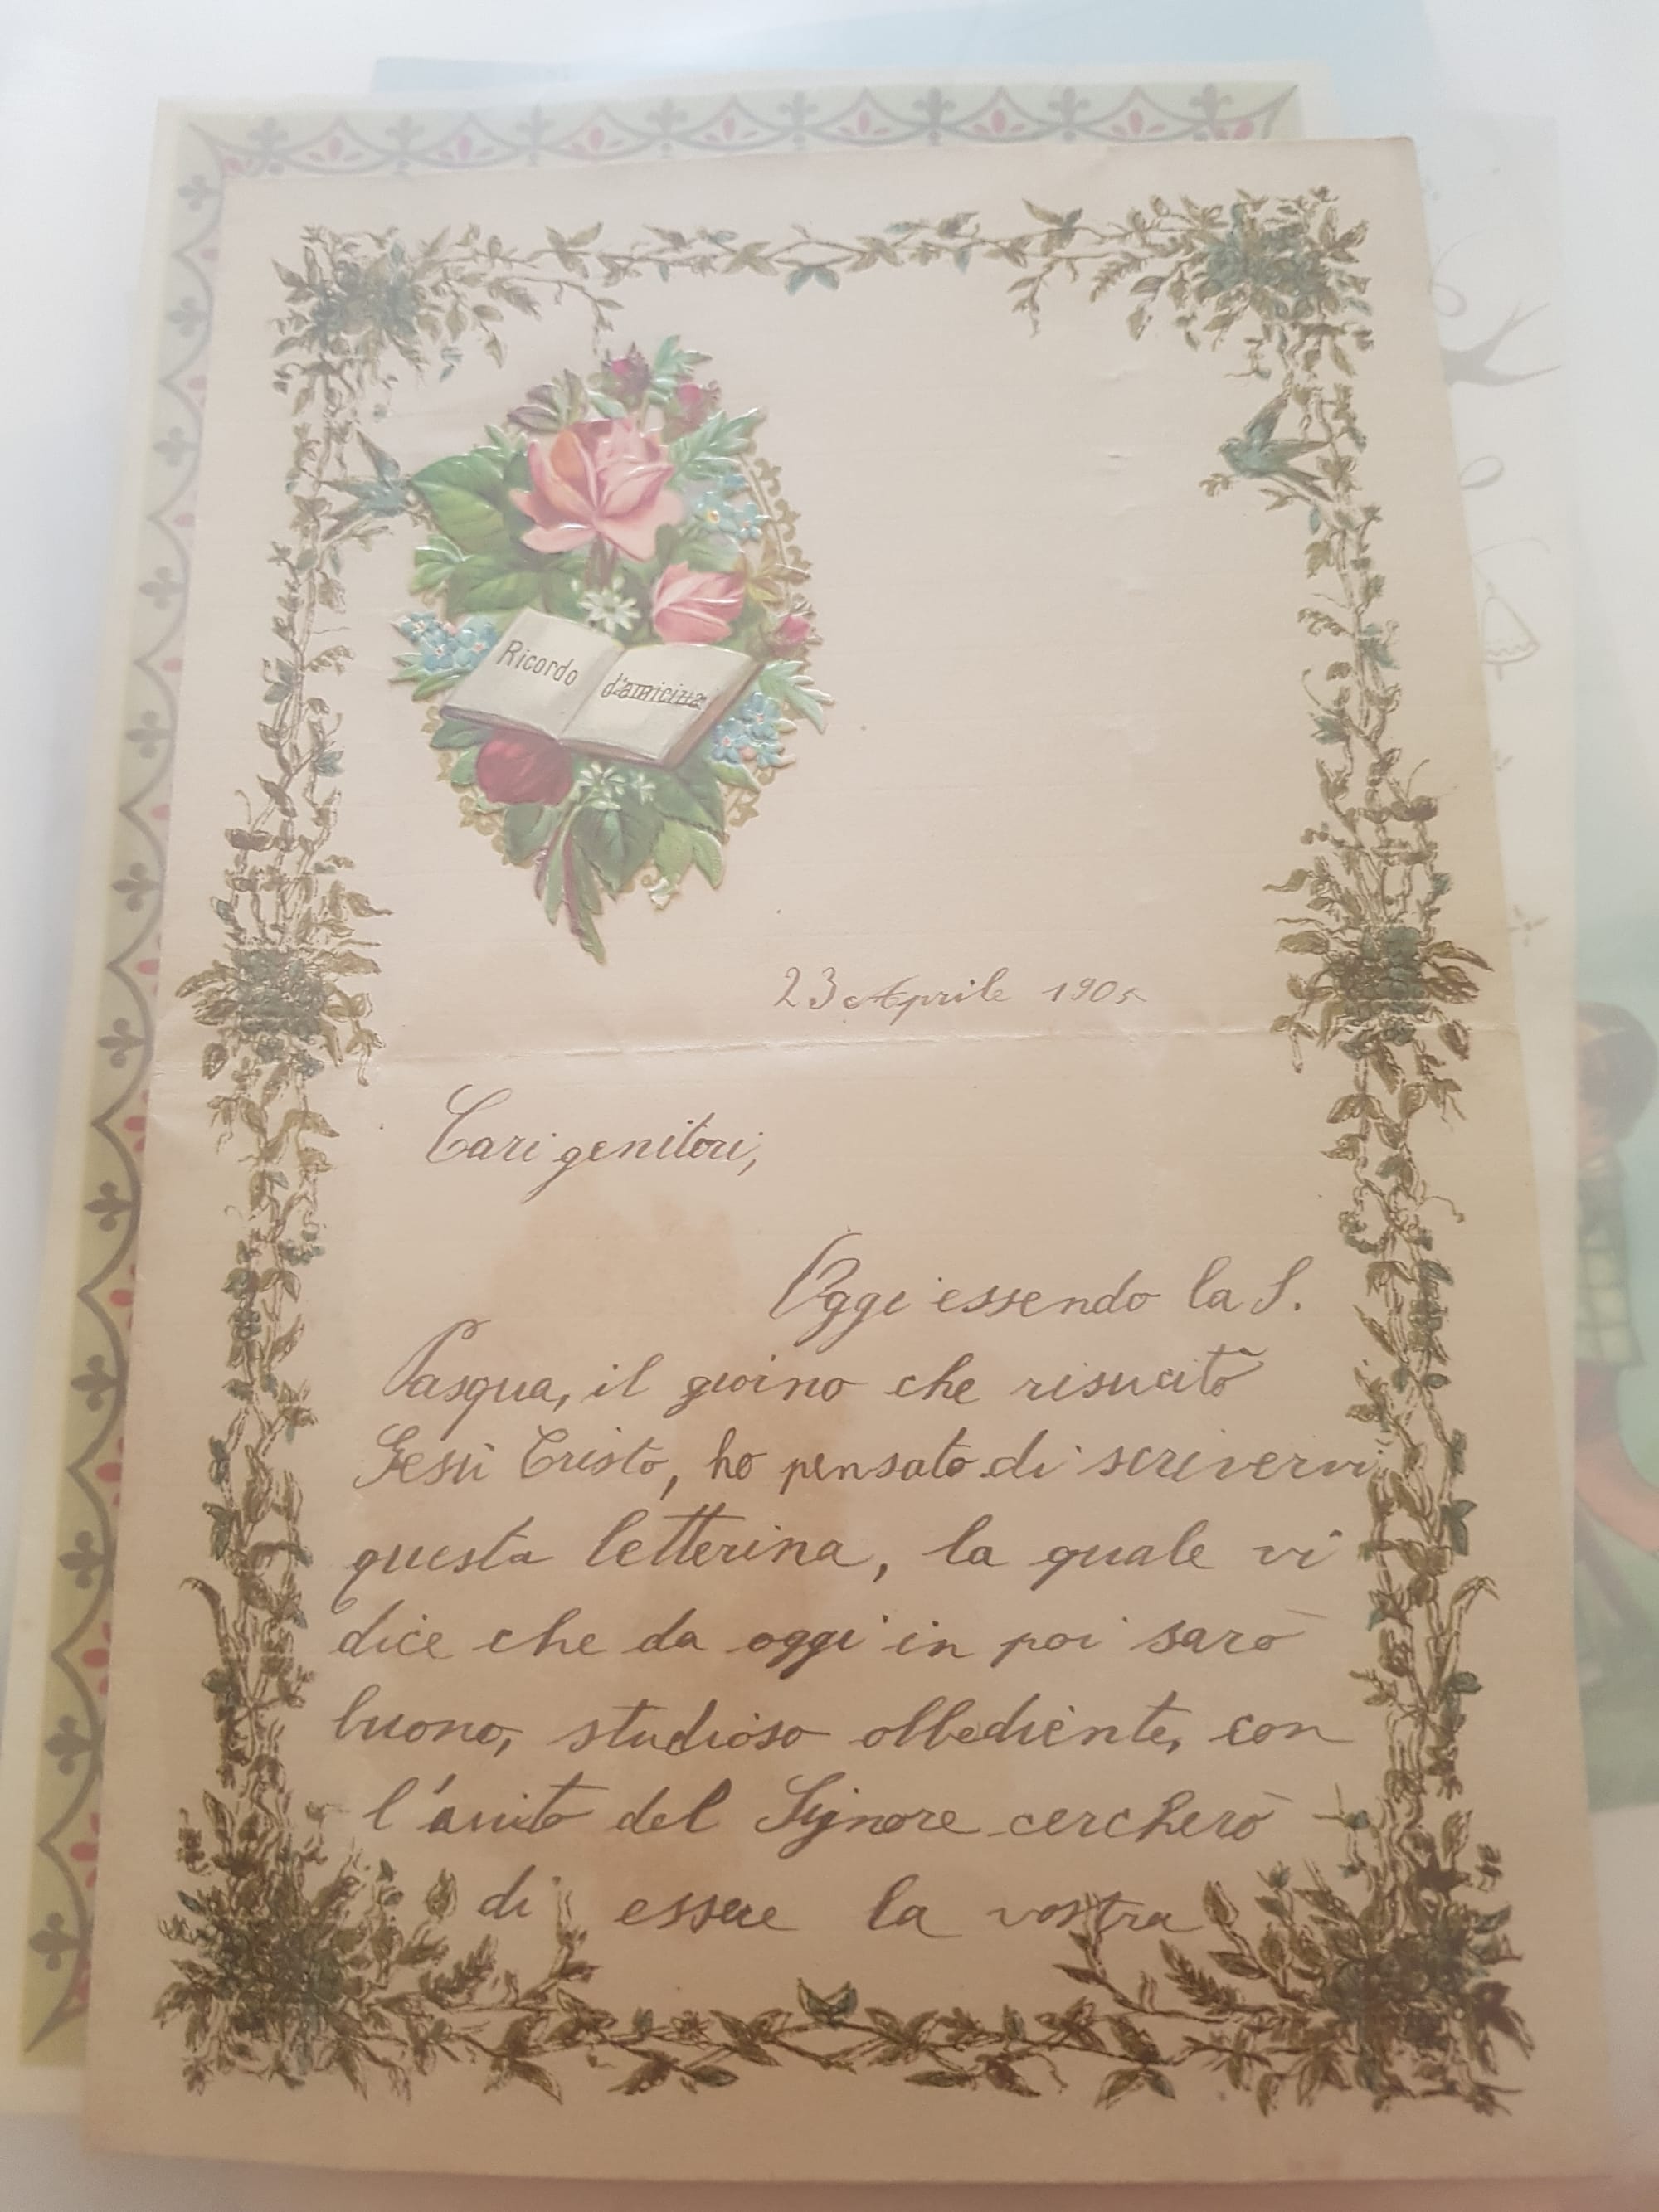 Ricordo d'amicizia
23 Aprile 1905
Cari genitori,
Oggi essendo la S.
Pasqua, il gioino che risucitò
Gesù Cristo, ho pensato di scrivervi
questa letterina, la quale vi
dice che da oggi in poi sarò
buono, studioso obbediente, con
l'auito del Signore cercherò
di essere la vostra